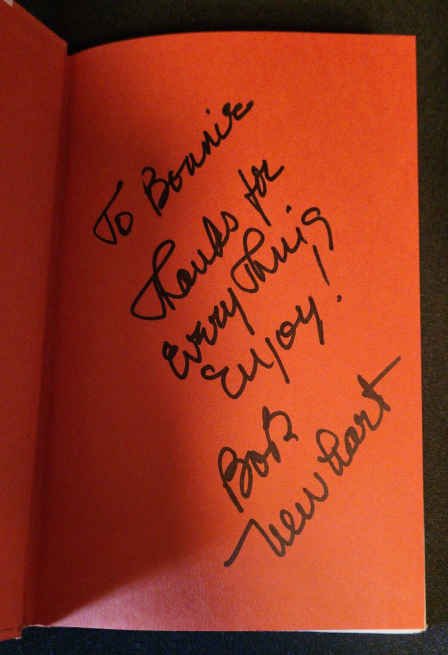 To Bonnie
Thanks for
Everything
Enjoy!
Bob
Newhart